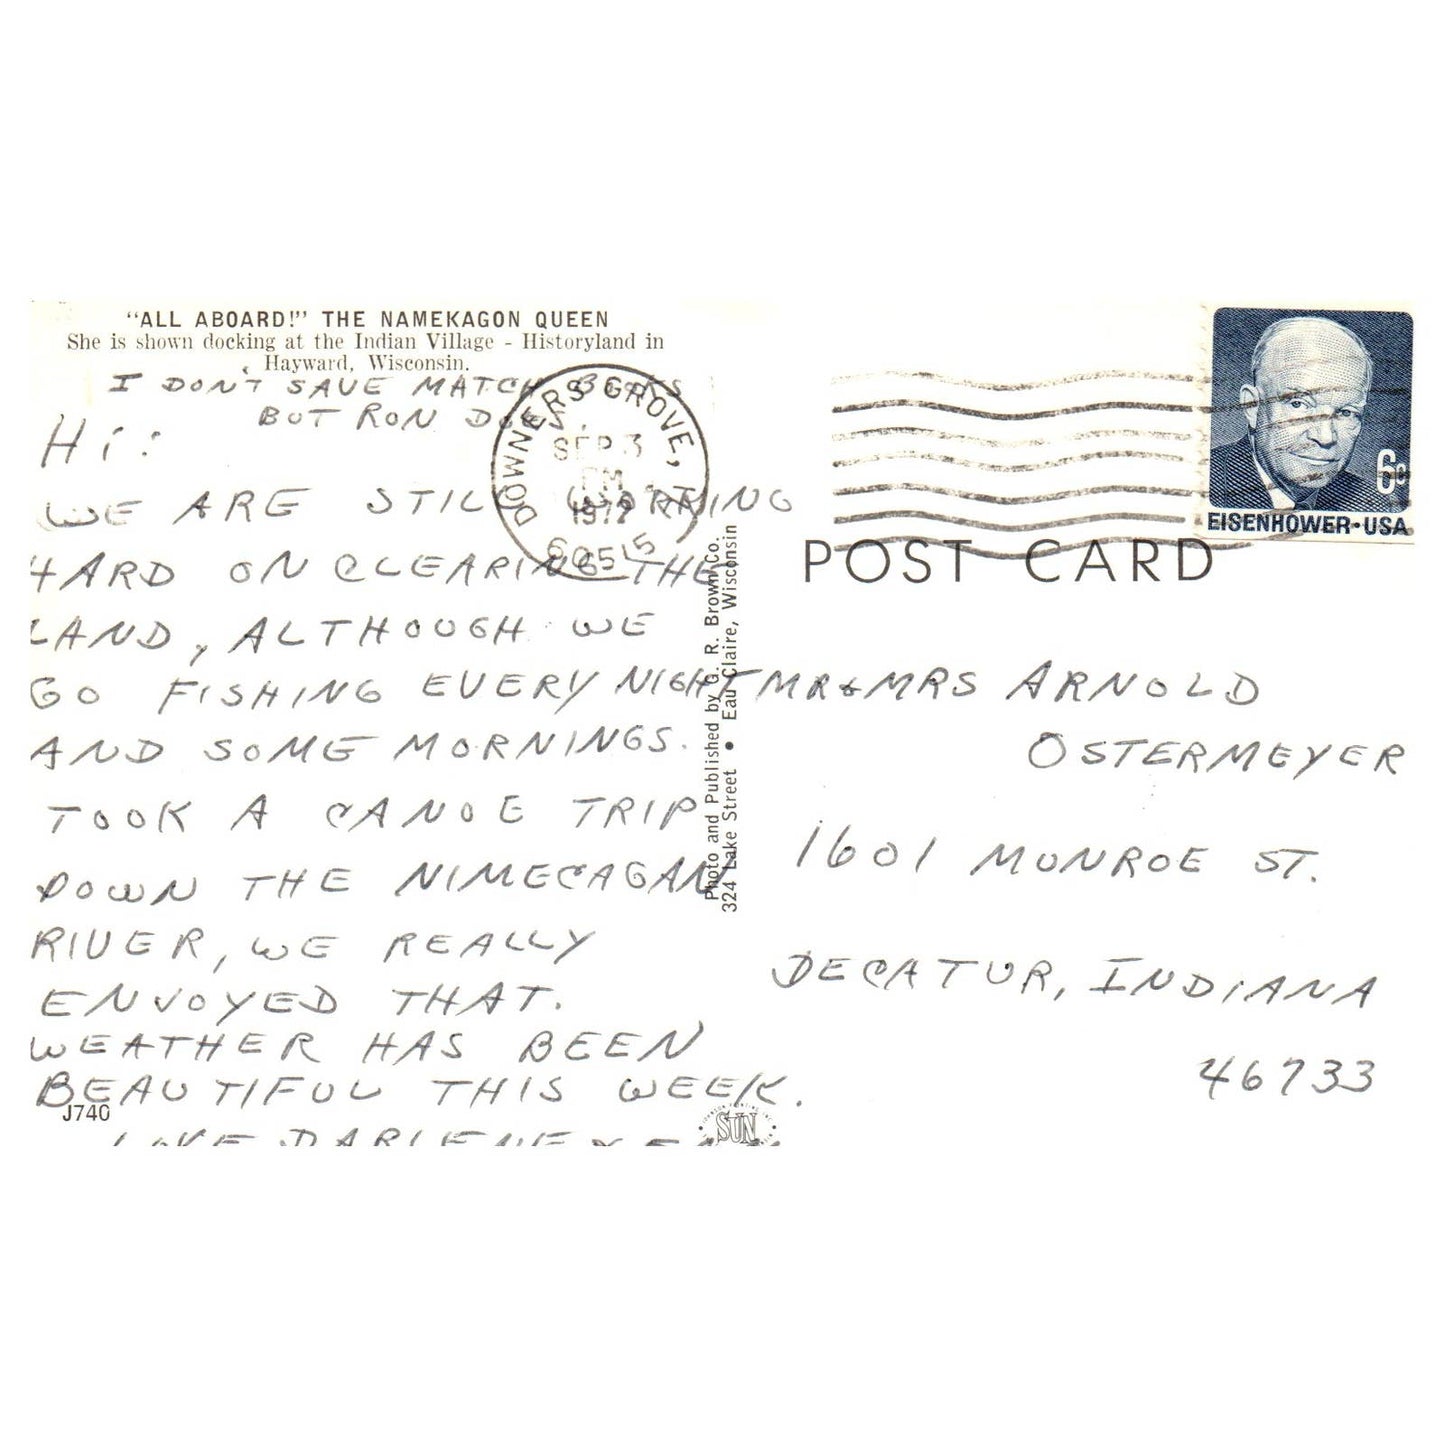 "ALL ABOARD!" THE NAMEKAGON QUEEN
She is shown docking at the Indian Village - Historyland in
Hayward, Wisconsin.
I DON'T SAVE MATCH BOOKS
BUT RON DOES.
Hi:
WE ARE STILL WORKING
HARD ON CLEARING THE
LAND, ALTHOUGH WE
GO FISHING EVERY NIGHT
AND SOME MORNINGS.
TOOK A CANOE TRIP
DOWN THE NIMECAGAN
RIVER, WE REALLY
ENJOYED THAT.
WEATHER HAS BEEN
BEAUTIFUL THIS WEEK.
LOVE DARLENE
J740
DOWNERS GROVE,
SEP 3
PM
1972
60515
Photo and Published by G. R. Brown Co.
324 Lake Street • Eau Claire, Wisconsin
SUN
6c
EISENHOWER·USA
POST CARD
MR & MRS ARNOLD
OSTERMEYER
1601 MONROE ST.
DECATUR, INDIANA
46733